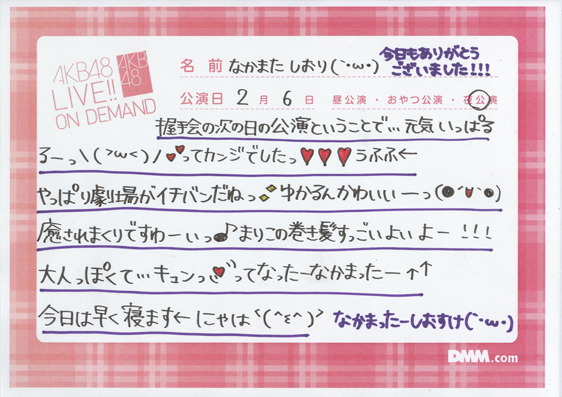 AKB48
LIVE!!
ON DEMAND
AKB
48
名 前 なかまた しおり(`･ω･)
今日もありがとう
ございました!!!
公演日 2 月 6 日 昼公演・おやつ公演・夜公演
握手会の次の日の公演ということで…元気いっぱる
ろーっ\(>ω<)/♥♥ってカンジでしたっ♥♥♥うふふ←
やっぱり劇場がイチバンだねっ ゆかるんかわいいーっ(●´ψ`●)
癒されまくりですわーいっ♪まりこの巻き髪すっごいよいよー!!!
大人っぽくて…キュンっ♥ってなったーなかまったー↑↑
今日は早く寝ます←にゃは‘(^ε^)’
なかまったーしおすけ(`･ω･)
DMM.com